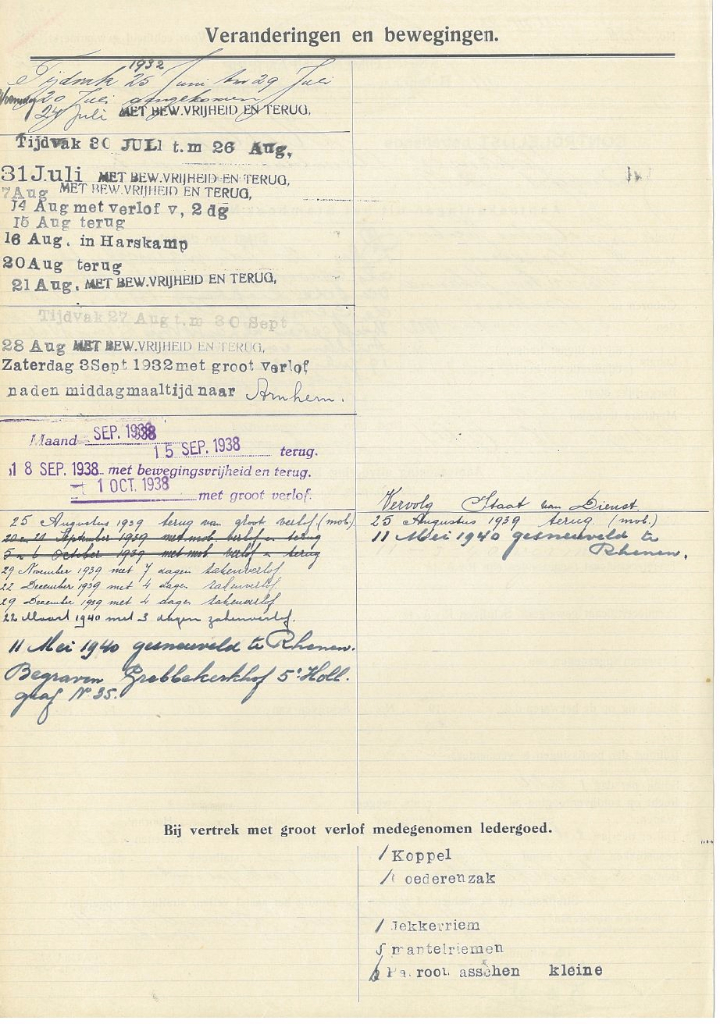 Veranderingen en bewegingen.
1932
Tijdvak 25 Juni t.m 29 Juli
20 Juli aangekomen
24 Juli MET BEW.VRIJHEID EN TERUG,
Tijdvak 30 JULI t.m 26 Aug,
31 Juli MET BEW.VRIJHEID EN TERUG,
7 Aug MET BEW.VRIJHEID EN TERUG,
14 Aug met verlof v, 2 dg
15 Aug terug
16 Aug. in Harskamp
20 Aug terug
21 Aug. MET BEW.VRIJHEID EN TERUG,
Tijdvak 27 Aug t.m 30 Sept
28 Aug MET BEW.VRIJHEID EN TERUG,
Zaterdag 3 Sept 1932 met groot verlof
naden middagmaaltijd naar Arnhem.
Maand SEP. 1938
15 SEP. 1938 terug.
18 SEP. 1938 met bewegingsvrijheid en terug.
1 OCT. 1938 met groot verlof.
25 Augustus 1939 terug van groot verlof (mob)
September 1939 met mob verlof en terug
5 en 6 October 1939 met mob verlof en terug
29 November 1939 met 7 dagen zakenverlof
22 December 1939 met 4 dagen zakenverlof
29 December 1939 met 4 dagen zakenverlof
22 Maart 1940 met 3 dagen zakenverlof.
11 Mei 1940 gesneuveld te Rhenen.
Begraven Grebbekerkhof 5e Holl.
graf No 35.
Vervolg Staat van Dienst.
25 Augustus 1939 terug (mob.)
11 Mei 1940 gesneuveld te
Rhenen.
Bij vertrek met groot verlof medegenomen ledergoed.
1 Koppel
1 oederenzak
1 Jekkerriem
5 mantelriemen
Pa root asschen kleine